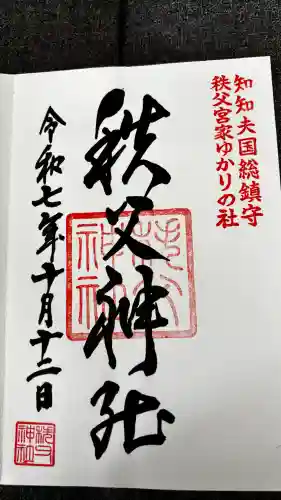 知知夫国総鎮守
秩父宮家ゆかりの社
秩父神社
令和七年十月十二日
秩父神社
秩父神社